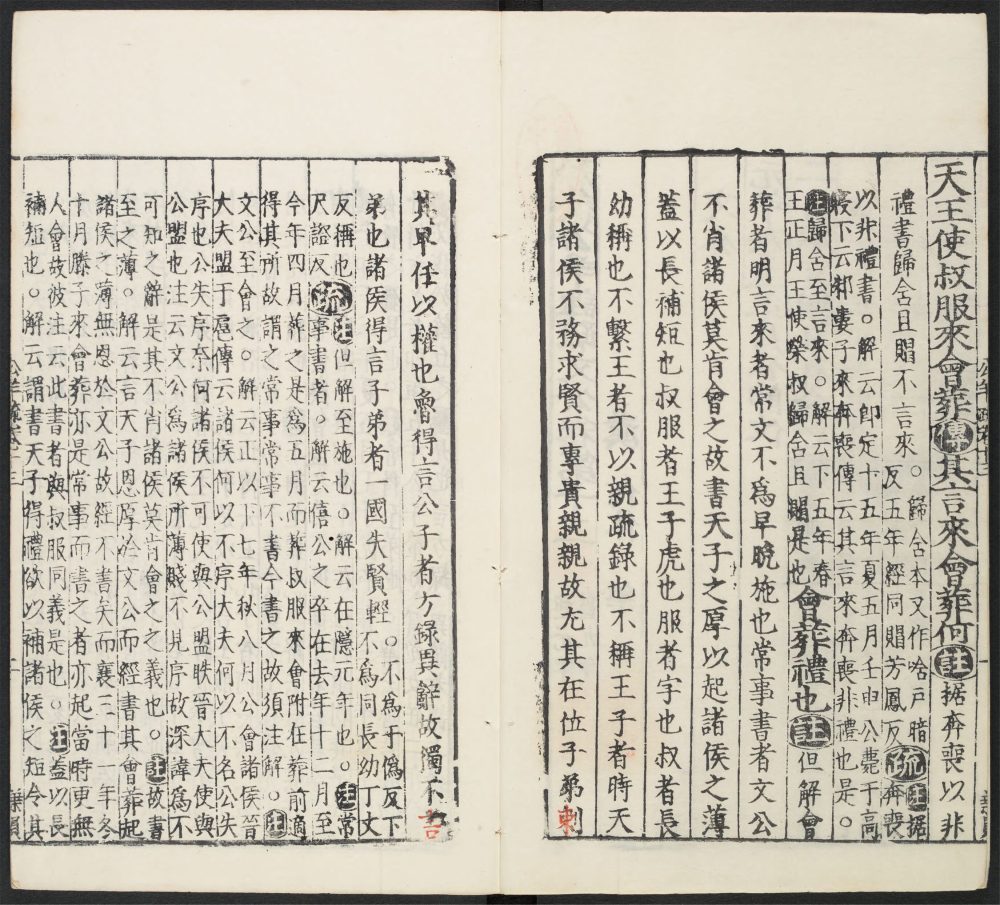 天王使叔服來會葬傳其言來會葬何註据奔喪以非
禮書歸含且賵不言來○歸含本又作唅戶暗
反五年經同賵芳鳳反疏註据奔喪
以非禮書○解云卽定十五年夏五月壬申公薨于高
寢下云邾婁子來奔喪傳云其言來奔喪非禮也是○
註歸含至言來○解云下五年春
王正月王使榮叔歸含且賵是也會葬禮也註但解會
葬者明言來者常文不爲早晚施也常事書者文公
不肖諸侯莫肯會之故書天子之厚以起諸侯之薄
蓋以長補短也叔服者王子虎也服者字也叔者長
幼稱也不繫王者不以親疏錄也不稱王子者時天
子諸侯不務求賢而專貴親親故尤其在位子弟刺
其早任以權也魯得言公子者方錄異辭故獨不言
弟也諸侯得言子弟者一國失賢輕○不爲于僞反下
不爲同長幼丁丈
反稱也
尺證反疏註但解至施也○解云在隱元年也○註常
事書者○解云僖公之卒在去年十二月至
今年四月葬之是爲五月而葬叔服來會附在葬前適
得其所故謂之常事常事不書今書之故須注解○註
文公至會之○解云正以下七年秋八月公會諸侯晉
大夫盟于扈傳云諸侯何以不序大夫何以不名公失
序也公失序奈何諸侯不可使與公盟眣晉大夫使與
公盟也注云文公爲諸侯所薄賤不見序故深諱爲不
可知之辭是其不肖諸侯莫肯會之之義也○註故書
至之薄○解云言天子恩厚於文公而經書其會葬起
諸侯之薄無恩於文公故經不書矣而襄三十一年冬
十月滕子來會葬亦是常事而書之者亦起當時更無
人會故彼注云此書者與叔服同義是也○註蓋以長
補短也○解云謂書天子得禮欲以補諸侯之短令其